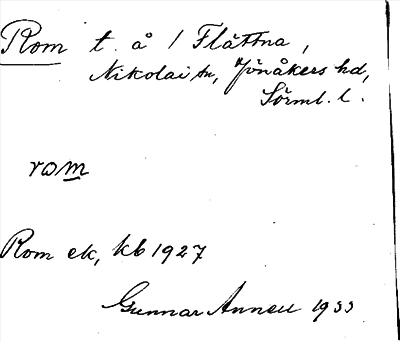 Rom t. å / Flättna,
Nikolai sn, Jönåkers hd,
Sörml. l.
rom
Rom ek, kb 1927
Gunnar Annell 1933